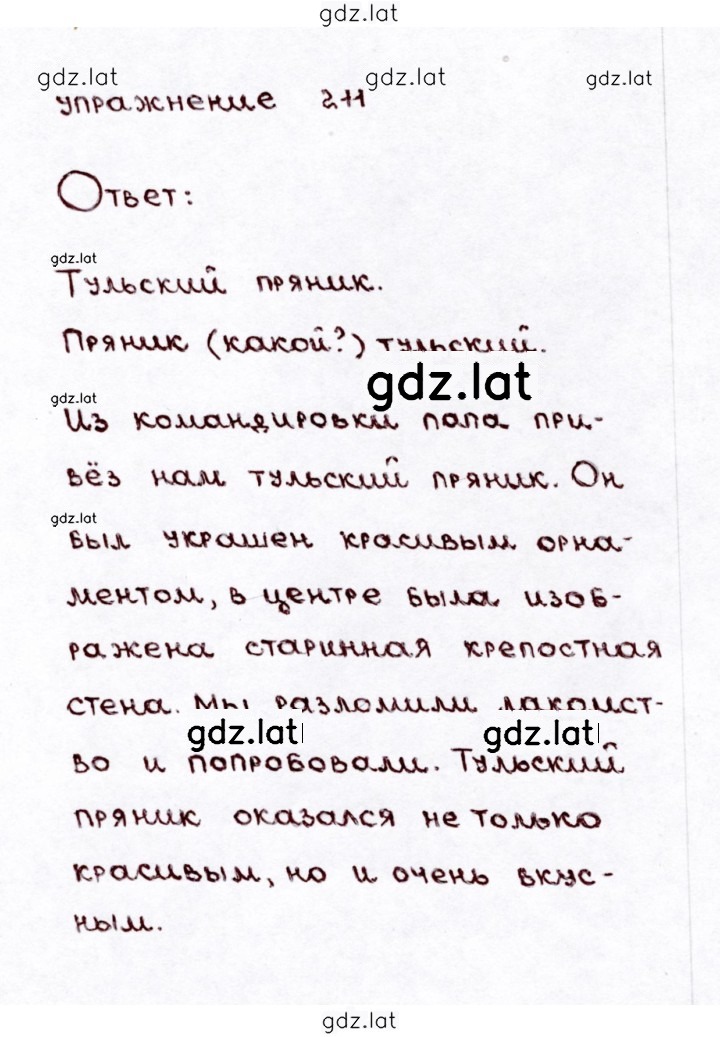 gdz.lat
gdz.lat gdz.lat gdz.lat
упражнение 211
Ответ:
gdz.lat
Тульский пряник.
Пряник (какой?) тульский.
gdz.lat
gdz.lat
Из командировки папа при-
вёз нам тульский пряник. Он
gdz.lat
был украшен красивым орна-
ментом, в центре была изоб-
ражена старинная крепостная
стена. Мы разломили лакомст-
gdz.lat gdz.lat
во и попробовали. Тульский
пряник оказался не только
красивым, но и очень вкус-
ным.
gdz.lat